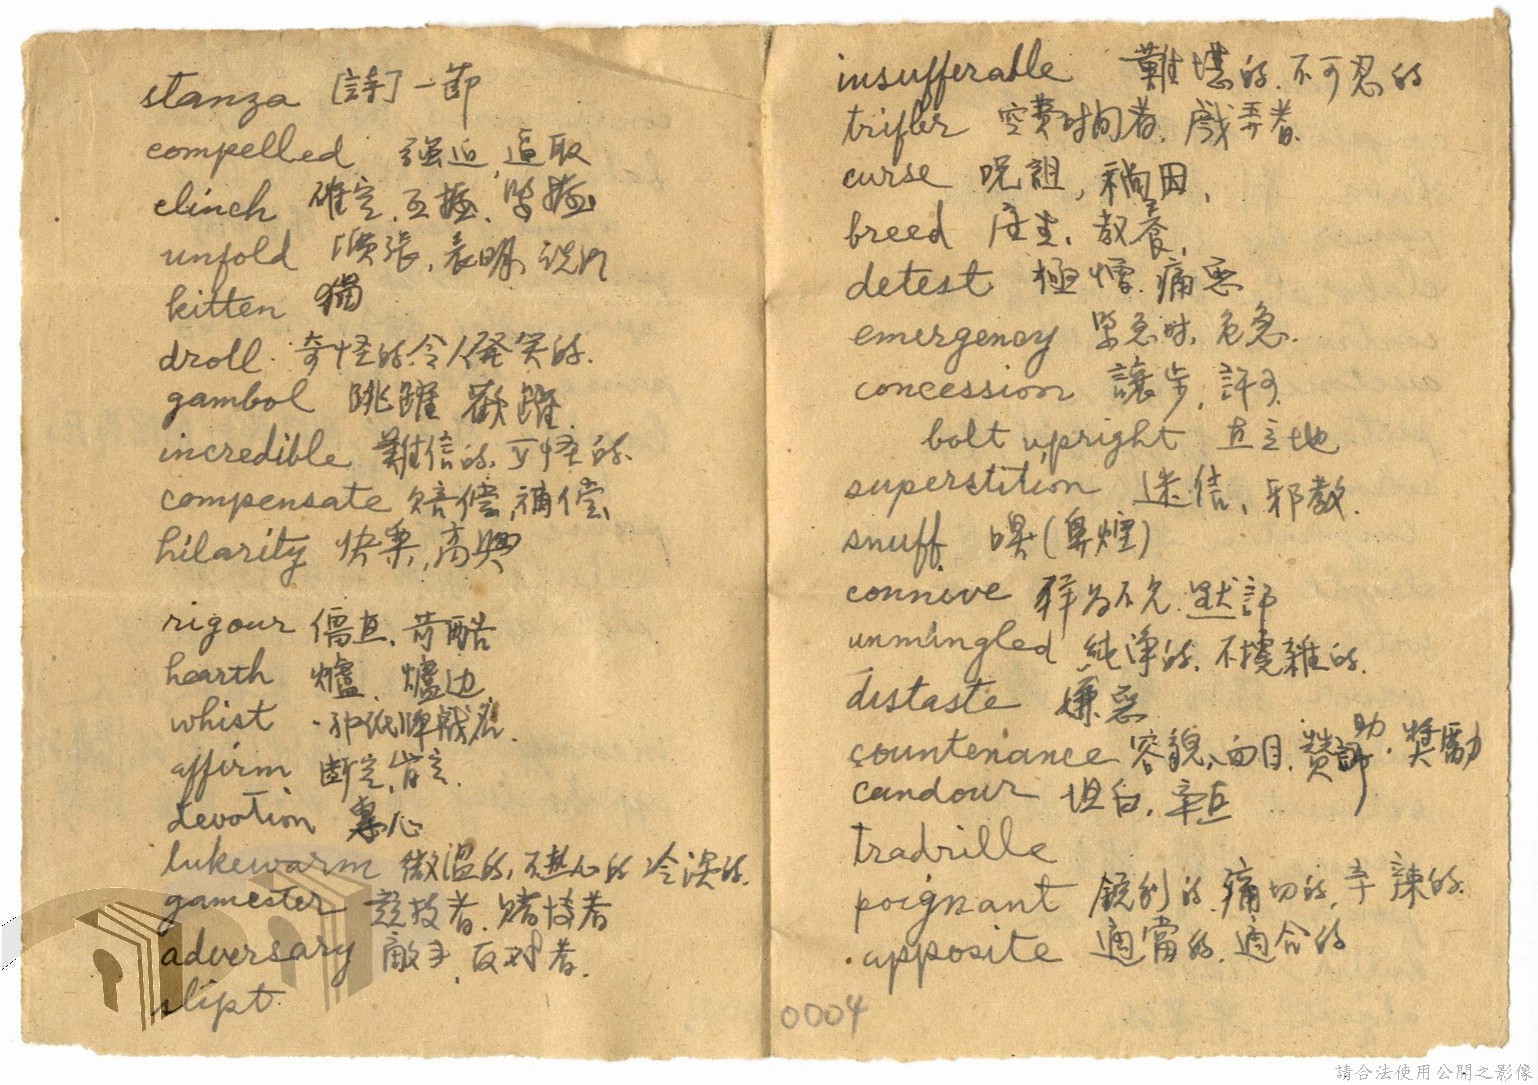 stanza [詩]一節
compelled 強迫,逼取
clinch 確定,互握、緊握
unfold 張,表明,說明
kitten 猫
droll. 奇怪的,令人發笑的.
gambol 跳躍 歡躍.
incredible 難信的,可怪的.
compensate 賠償,補償,
hilarity 快樂,高興
rigour 直,苛酷
hearth 爐、爐边
whist
affirm 斷定,肯定.
devotion 專心
lukewarm 微温的,不熱心的 冷淡的.
gamester 競技者,賭博者
adversary 敵手,反对者.
slipt.
insufferable 難堪的,不可忍的
trifler 空費时间者,戲弄者.
curse 咒詛,禍因,
breed 產生,教養,
detest 極憎,痛惡
emergency 緊急时,危急.
concession 讓步,許可.
bolt upright 直立地
superstition 迷信、邪教.
snuff. 嗅(鼻煙)
connive 佯为不見,默許
unmingled 純淨的,不攙雜的.
distaste 嫌惡
countenance 容貌、面目,贊助,獎勵
candour 坦白,率直
tradrille
poignant 銳利的,痛切的,辛辣的.
.apposite 適當的,適合的
0004
請合法使用公開之影像